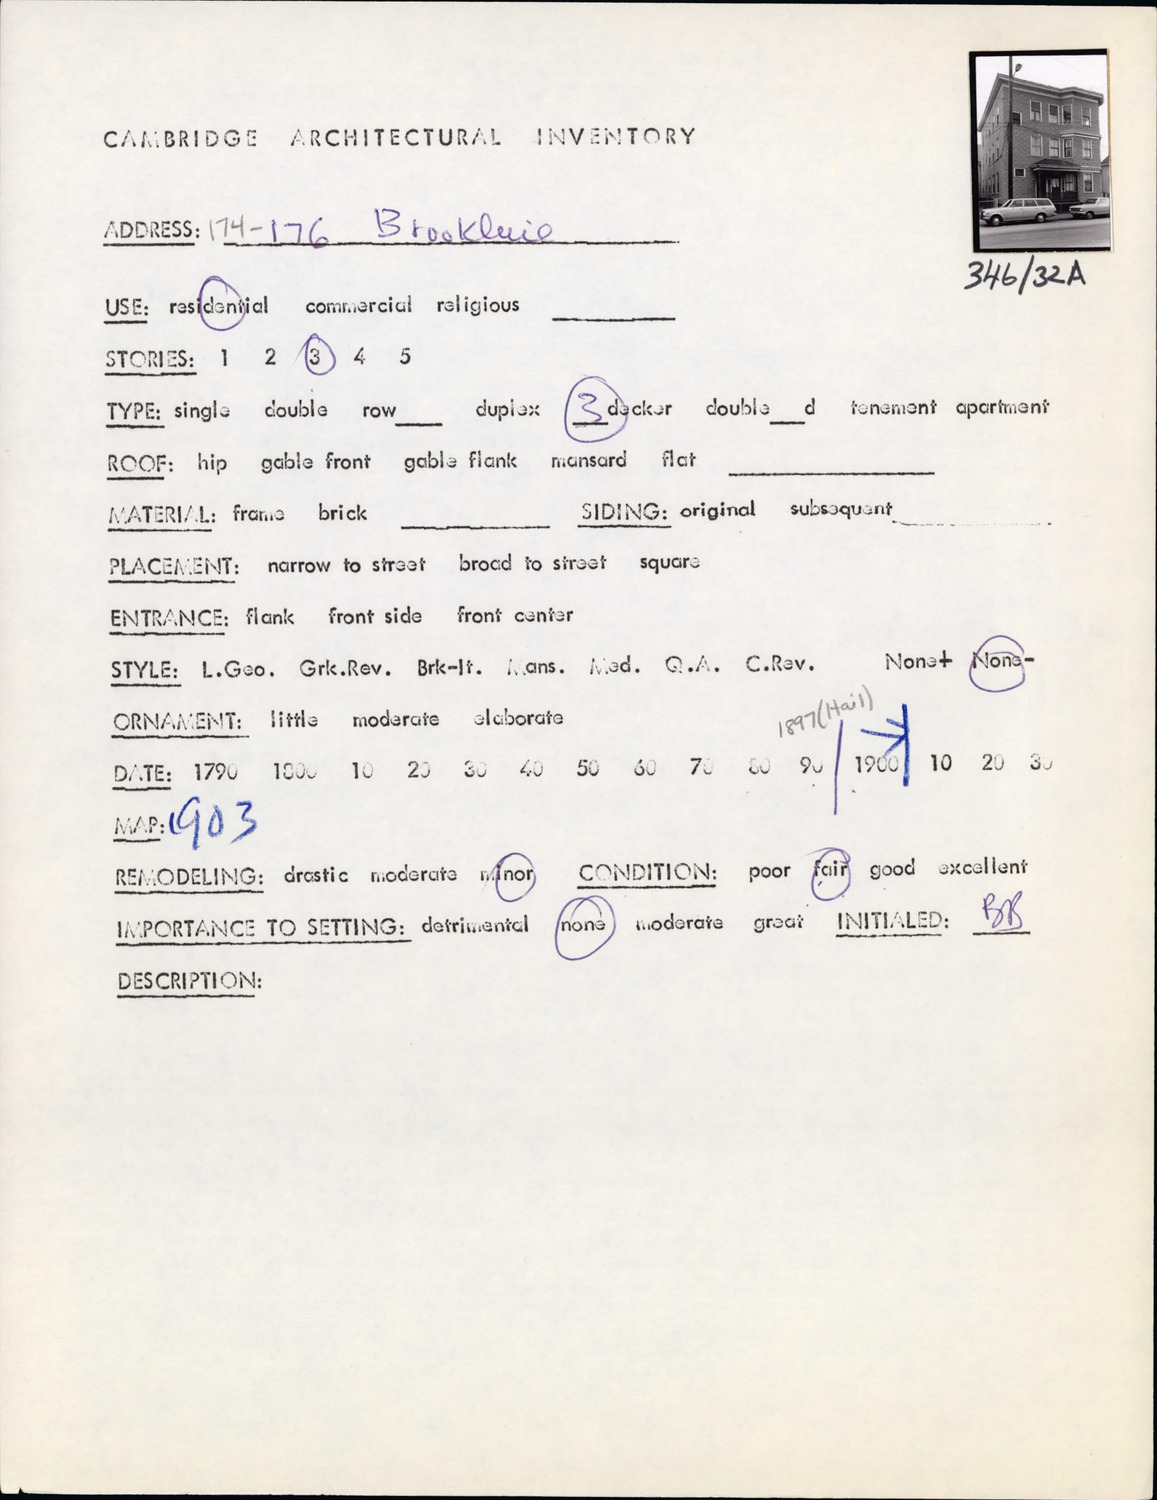 CAMBRIDGE ARCHITECTURAL INVENTORY
346/32A
ADDRESS: 174-176 Brookline
USE: residential commercial religious
STORIES: 1 2 3 4 5
TYPE: single double row___ duplex 3 decker double___d tenement apartment
ROOF: hip gable front gable flank mansard flat
MATERIAL: frame brick SIDING: original subsequent
PLACEMENT: narrow to street broad to street square
ENTRANCE: flank front side front center
STYLE: L.Geo. Grk.Rev. Brk-It. Mans. Med. Q.A. C.Rev. None+ None-
ORNAMENT: little moderate elaborate
1897 (Hail)
DATE: 1790 1800 10 20 30 40 50 60 70 80 90 1900 10 20 30
MAP: 1903
REMODELING: drastic moderate minor CONDITION: poor fair good excellent
IMPORTANCE TO SETTING: detrimental none moderate great INITIALED: BB
DESCRIPTION: